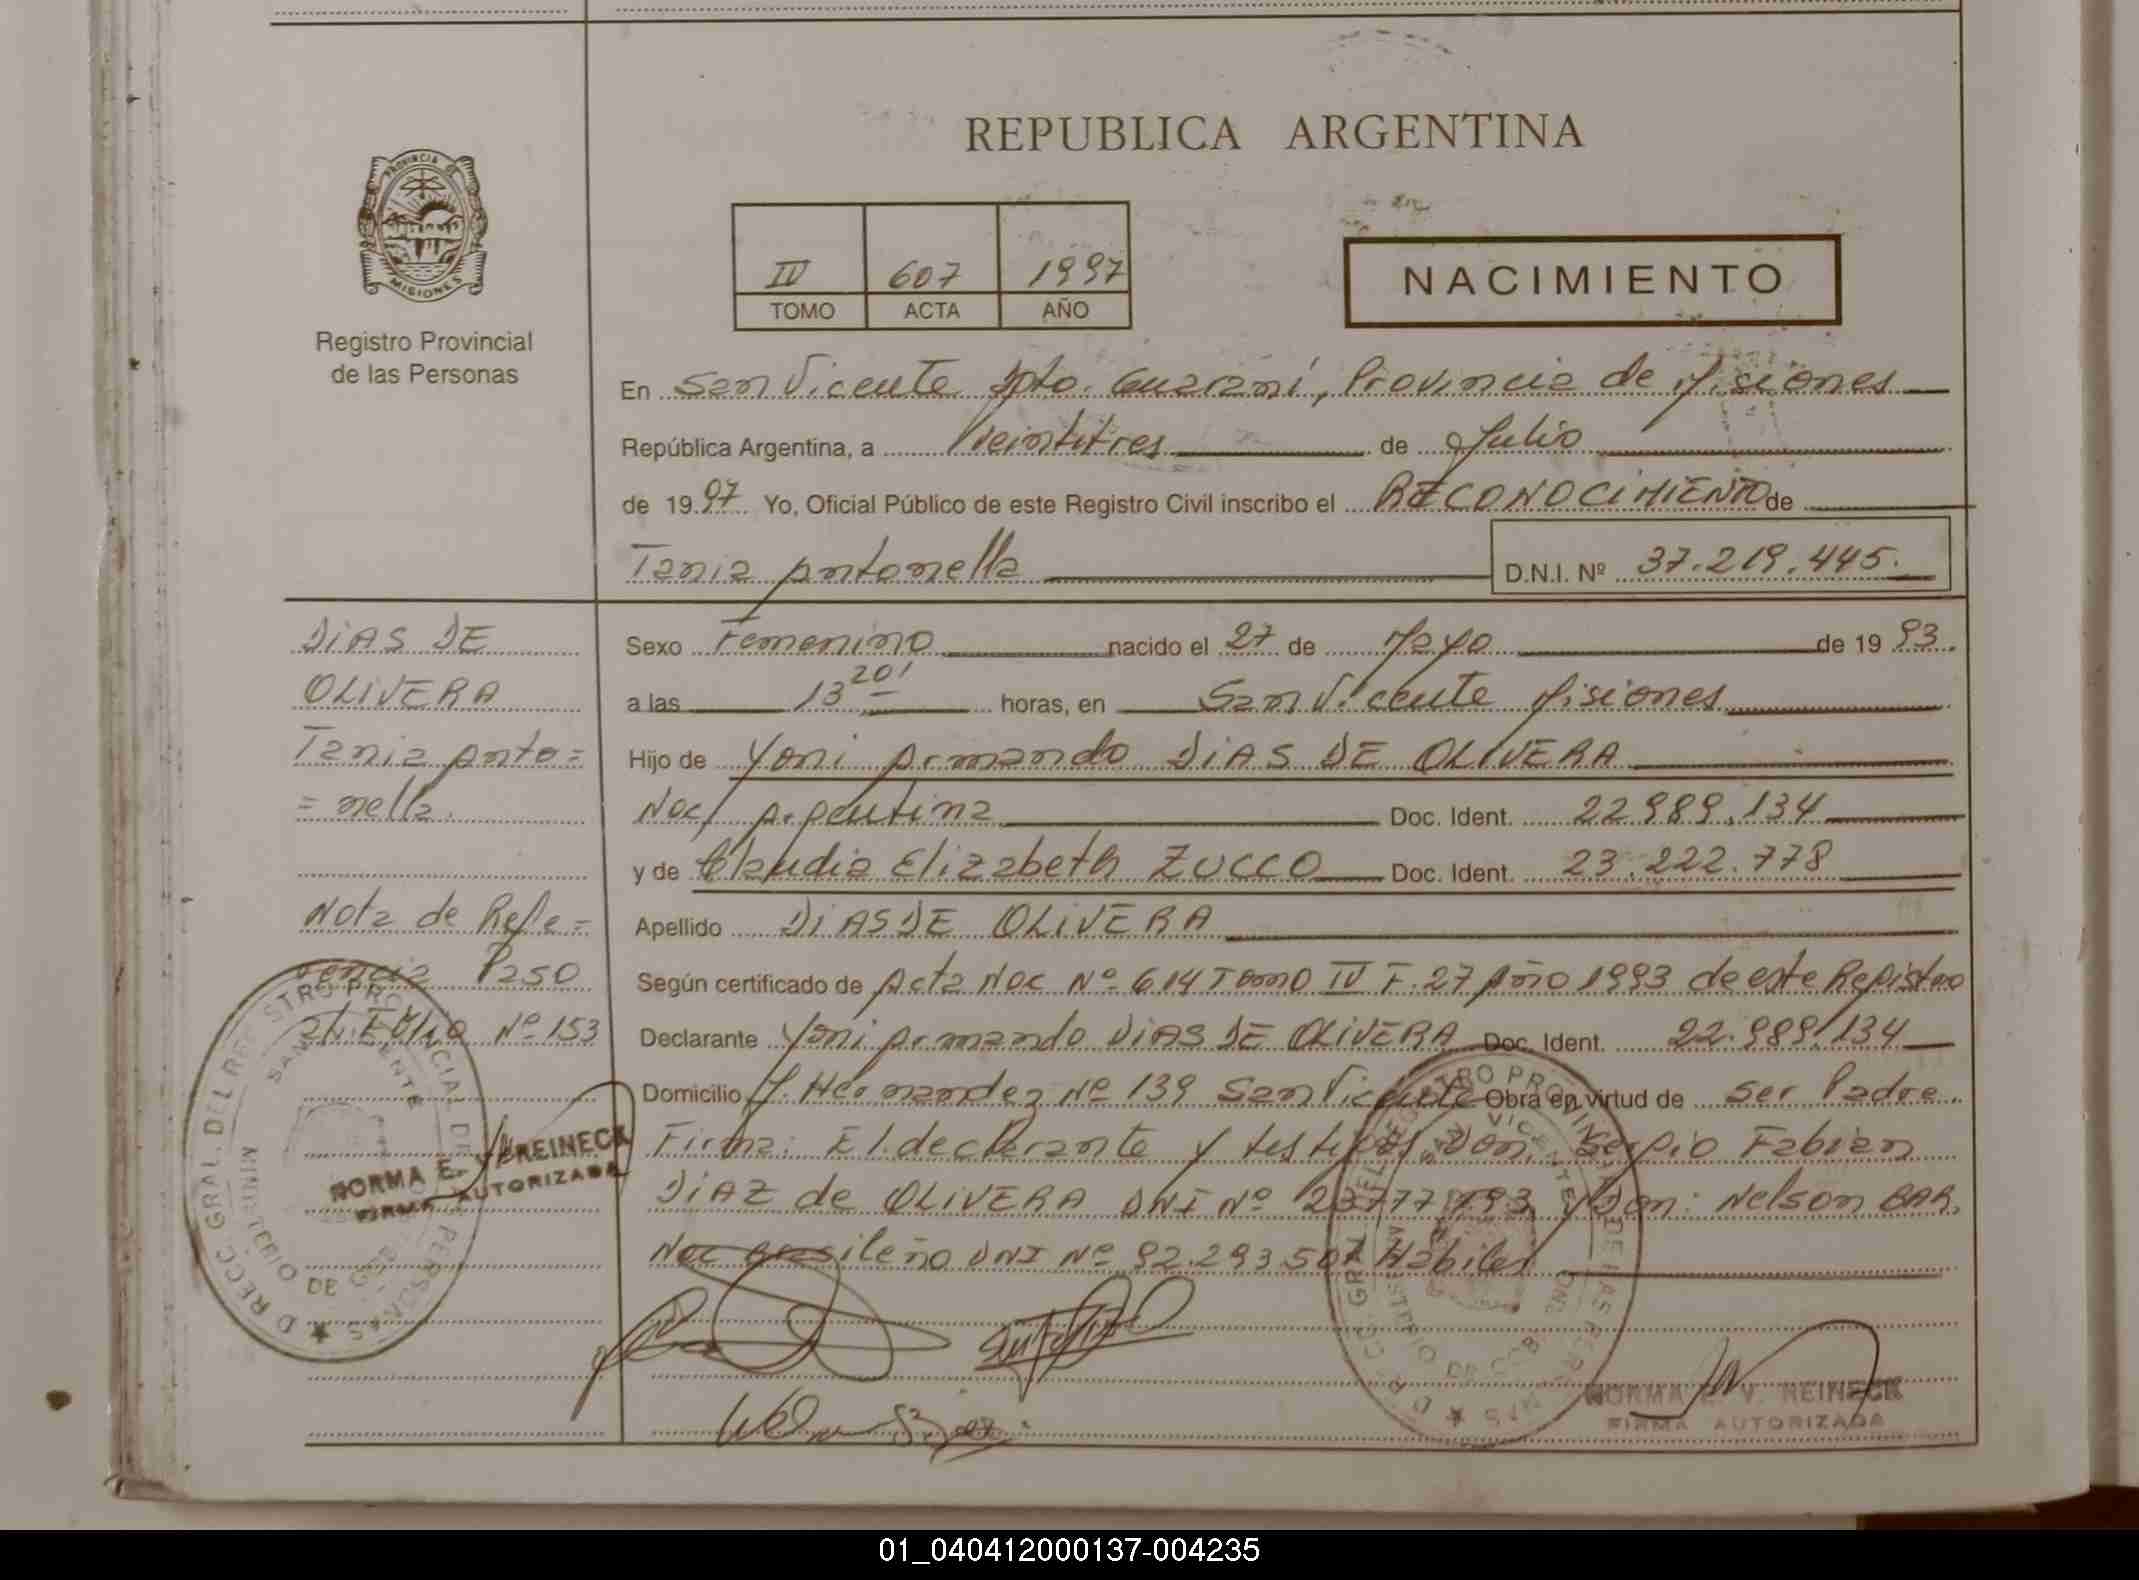 REPUBLICA ARGENTINA
PROVINCIA DE MISIONES
Registro Provincial
de las Personas
IV 607 1997
TOMO ACTA AÑO
NACIMIENTO
En San Vicente Dpto. Guaraní, Provincia de Misiones
República Argentina, a Veintitres de Julio
de 1997 Yo, Oficial Público de este Registro Civil inscribo el RECONOCIMIENTO de
Tania Antonella D.N.I. Nº 37.219.445.
DIAS DE
OLIVERA
Tania Anto=
=nella.
Nota de Refe=
rencia Paso
al Folio Nº 153
NORMA E. V. REINECK
FIRMA AUTORIZADA
Sexo Femenino nacido el 27 de Mayo de 1993.
a las 13 20' horas, en San Vicente Misiones
Hijo de Yoni Armando DIAS DE OLIVERA
Nac/ Argentina Doc. Ident. 22.989.134
y de Claudia Elizabeth ZUCCO Doc. Ident. 23.222.778
Apellido DIAS DE OLIVERA
Según certificado de Acta Nac Nº 614 Tomo IV F. 27 Año 1993 de este Registro
Declarante Yoni Armando DIAS DE OLIVERA Doc. Ident. 22.989.134
Domicilio J. Hernandez Nº 139 San Vicente Obra en virtud de ser Padre.
Firma: El declarante y testigos Don. Sergio Fabian
DIAZ de OLIVERA DNI Nº 23777193 y Don: Nelson BAR.
Nac Brasileño DNI Nº 92.293.507 Habiles
NORMA E. V. REINECK
FIRMA AUTORIZADA
01_040412000137-004235